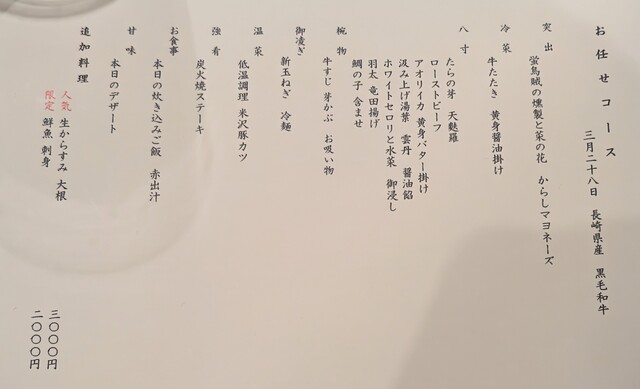 お任せコース
三月二十八日　長崎県産　黒毛和牛
突出
蛍烏賊の燻製と菜の花　からしマヨネーズ
冷菜
牛たたき　黄身醤油掛け
八寸
たらの芽　天麩羅
ローストビーフ
アオリイカ　黄身バター掛け
汲み上げ湯葉　雲丹　醤油餡
ホワイトセロリと水菜　御浸し
羽太　竜田揚げ
鯛の子　含ませ
椀物
牛すじ　芽かぶ　お吸い物
御凌ぎ
新玉ねぎ　冷麺
温菜
低温調理　米沢豚カツ
強肴
炭火焼ステーキ
お食事
本日の炊き込みご飯　赤出汁
甘味
本日のデザート
追加料理
人気　生からすみ　大根　三〇〇〇円
限定　鮮魚　刺身　二〇〇〇円